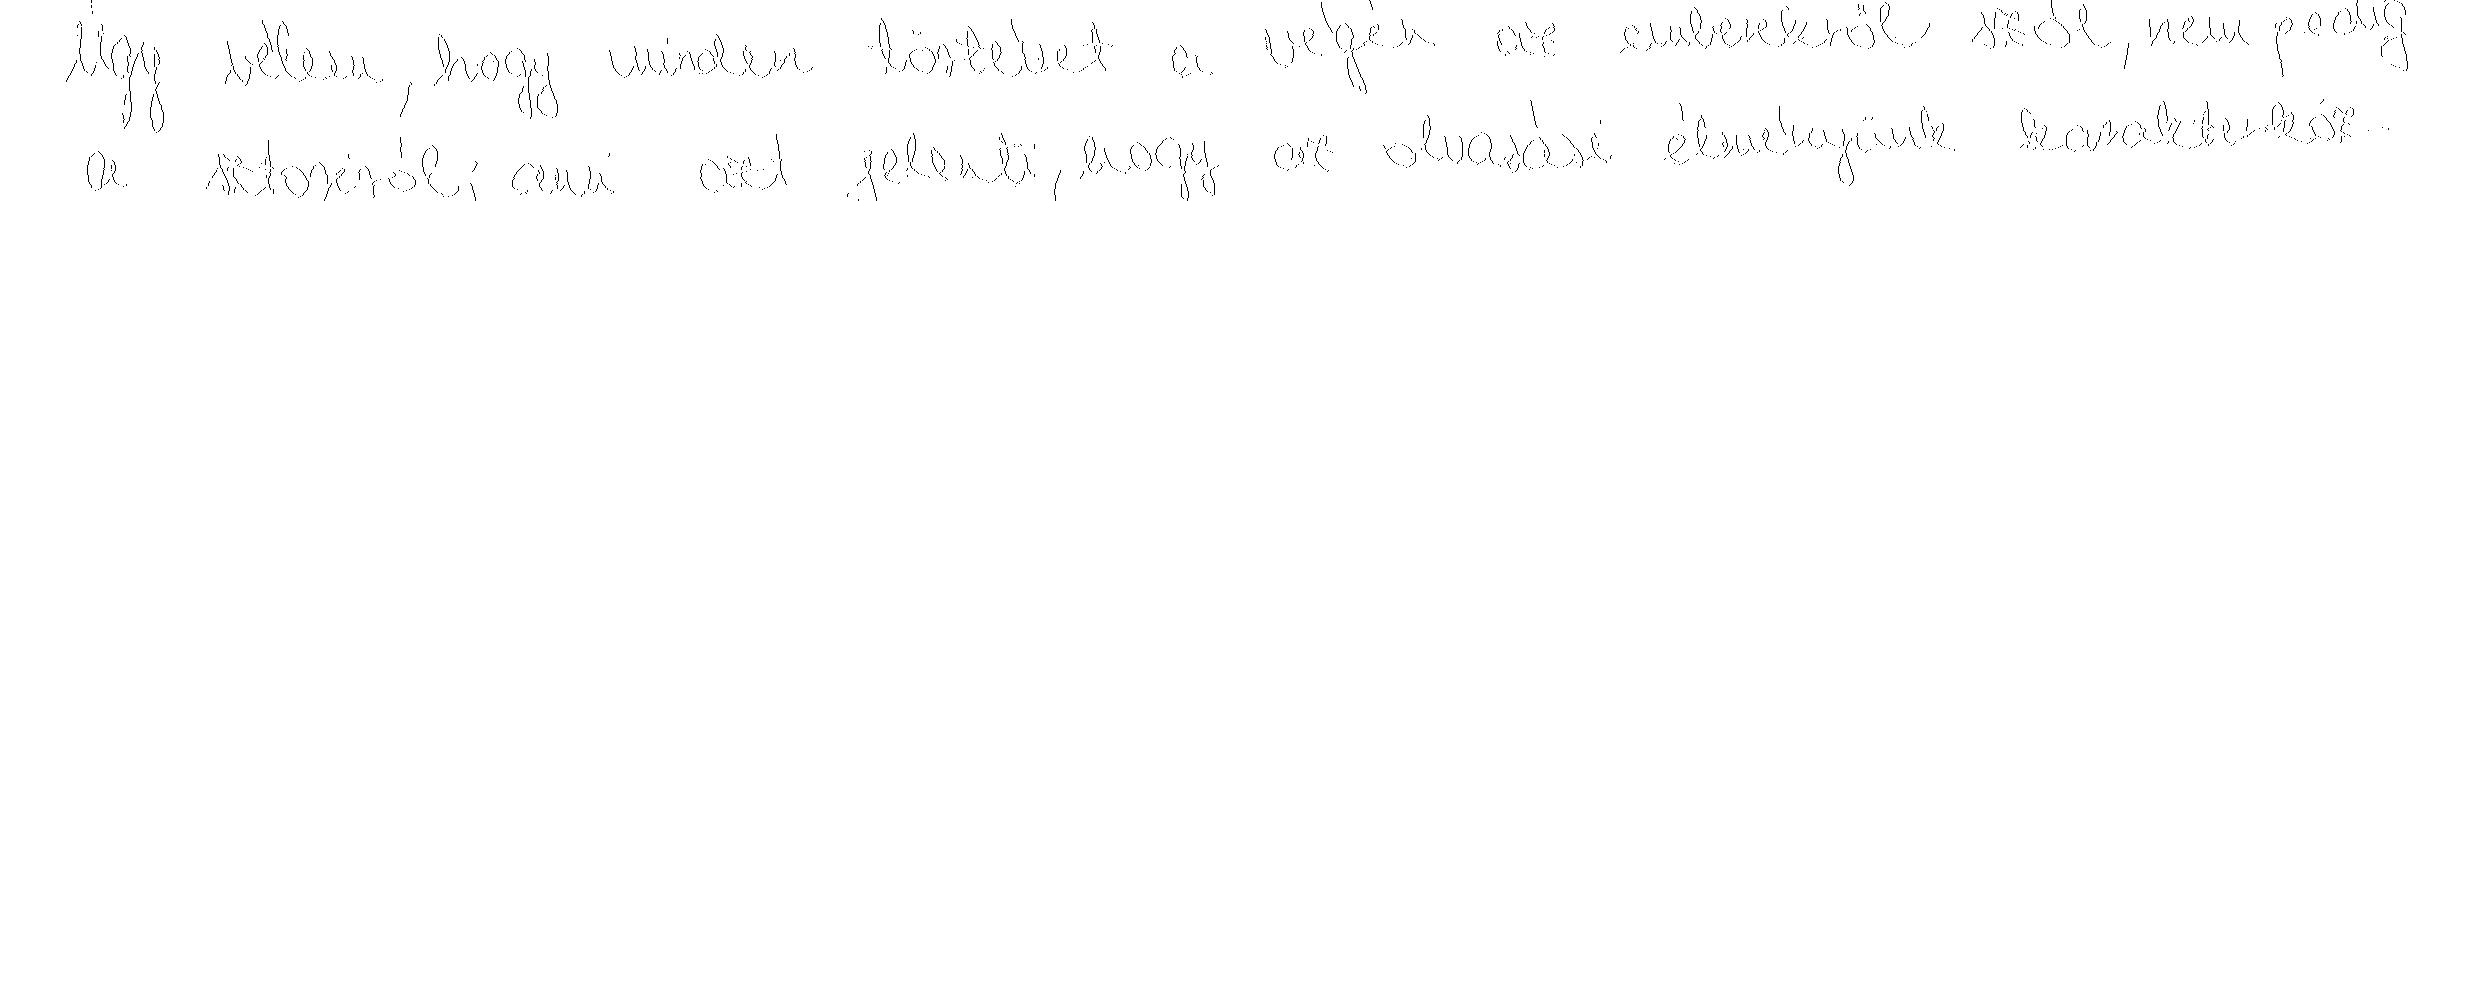 Úgy vélem, hogy minden történet a végén az emberekről szól, nem pedig
a sztoriról; ami azt jelenti, hogy az olvasási élményünk karakterköz-